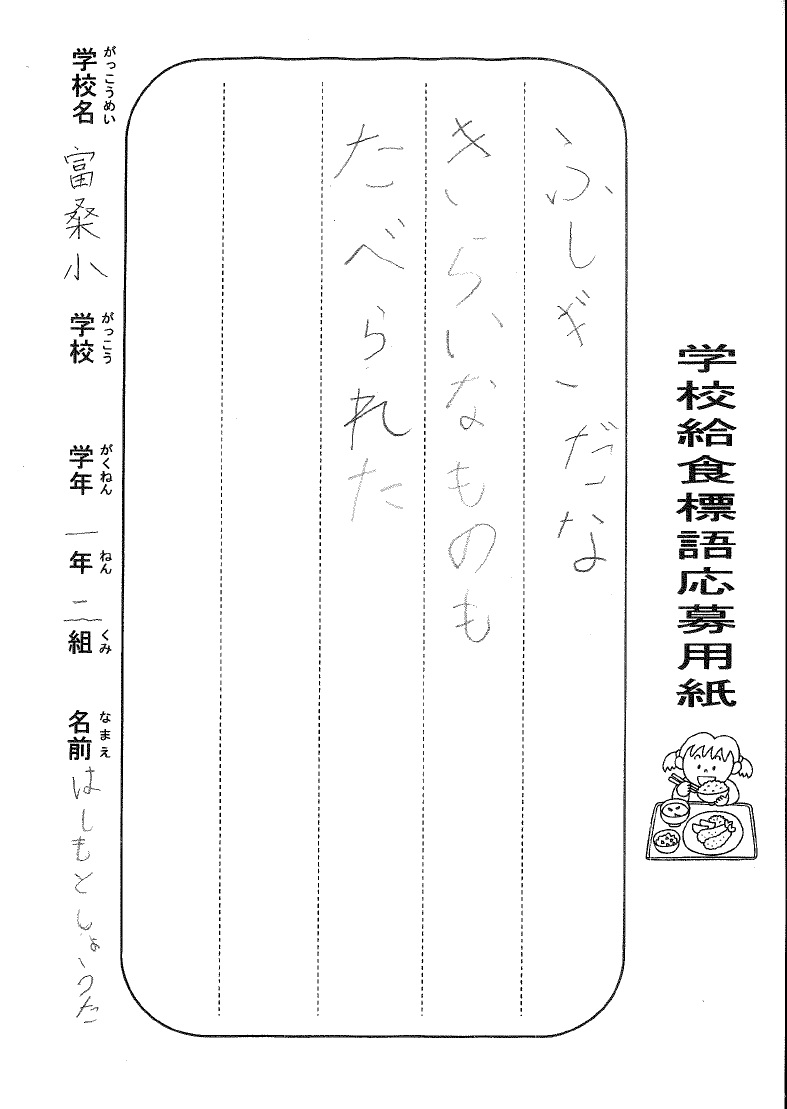 学校給食標語応募用紙
ふしぎだな
きらいなものも
たべられた
学校名 富桑小 学校 学年 一年 二組 名前 はしもとしょうた
がっこうめい がっこう がくねん ねん くみ なまえ